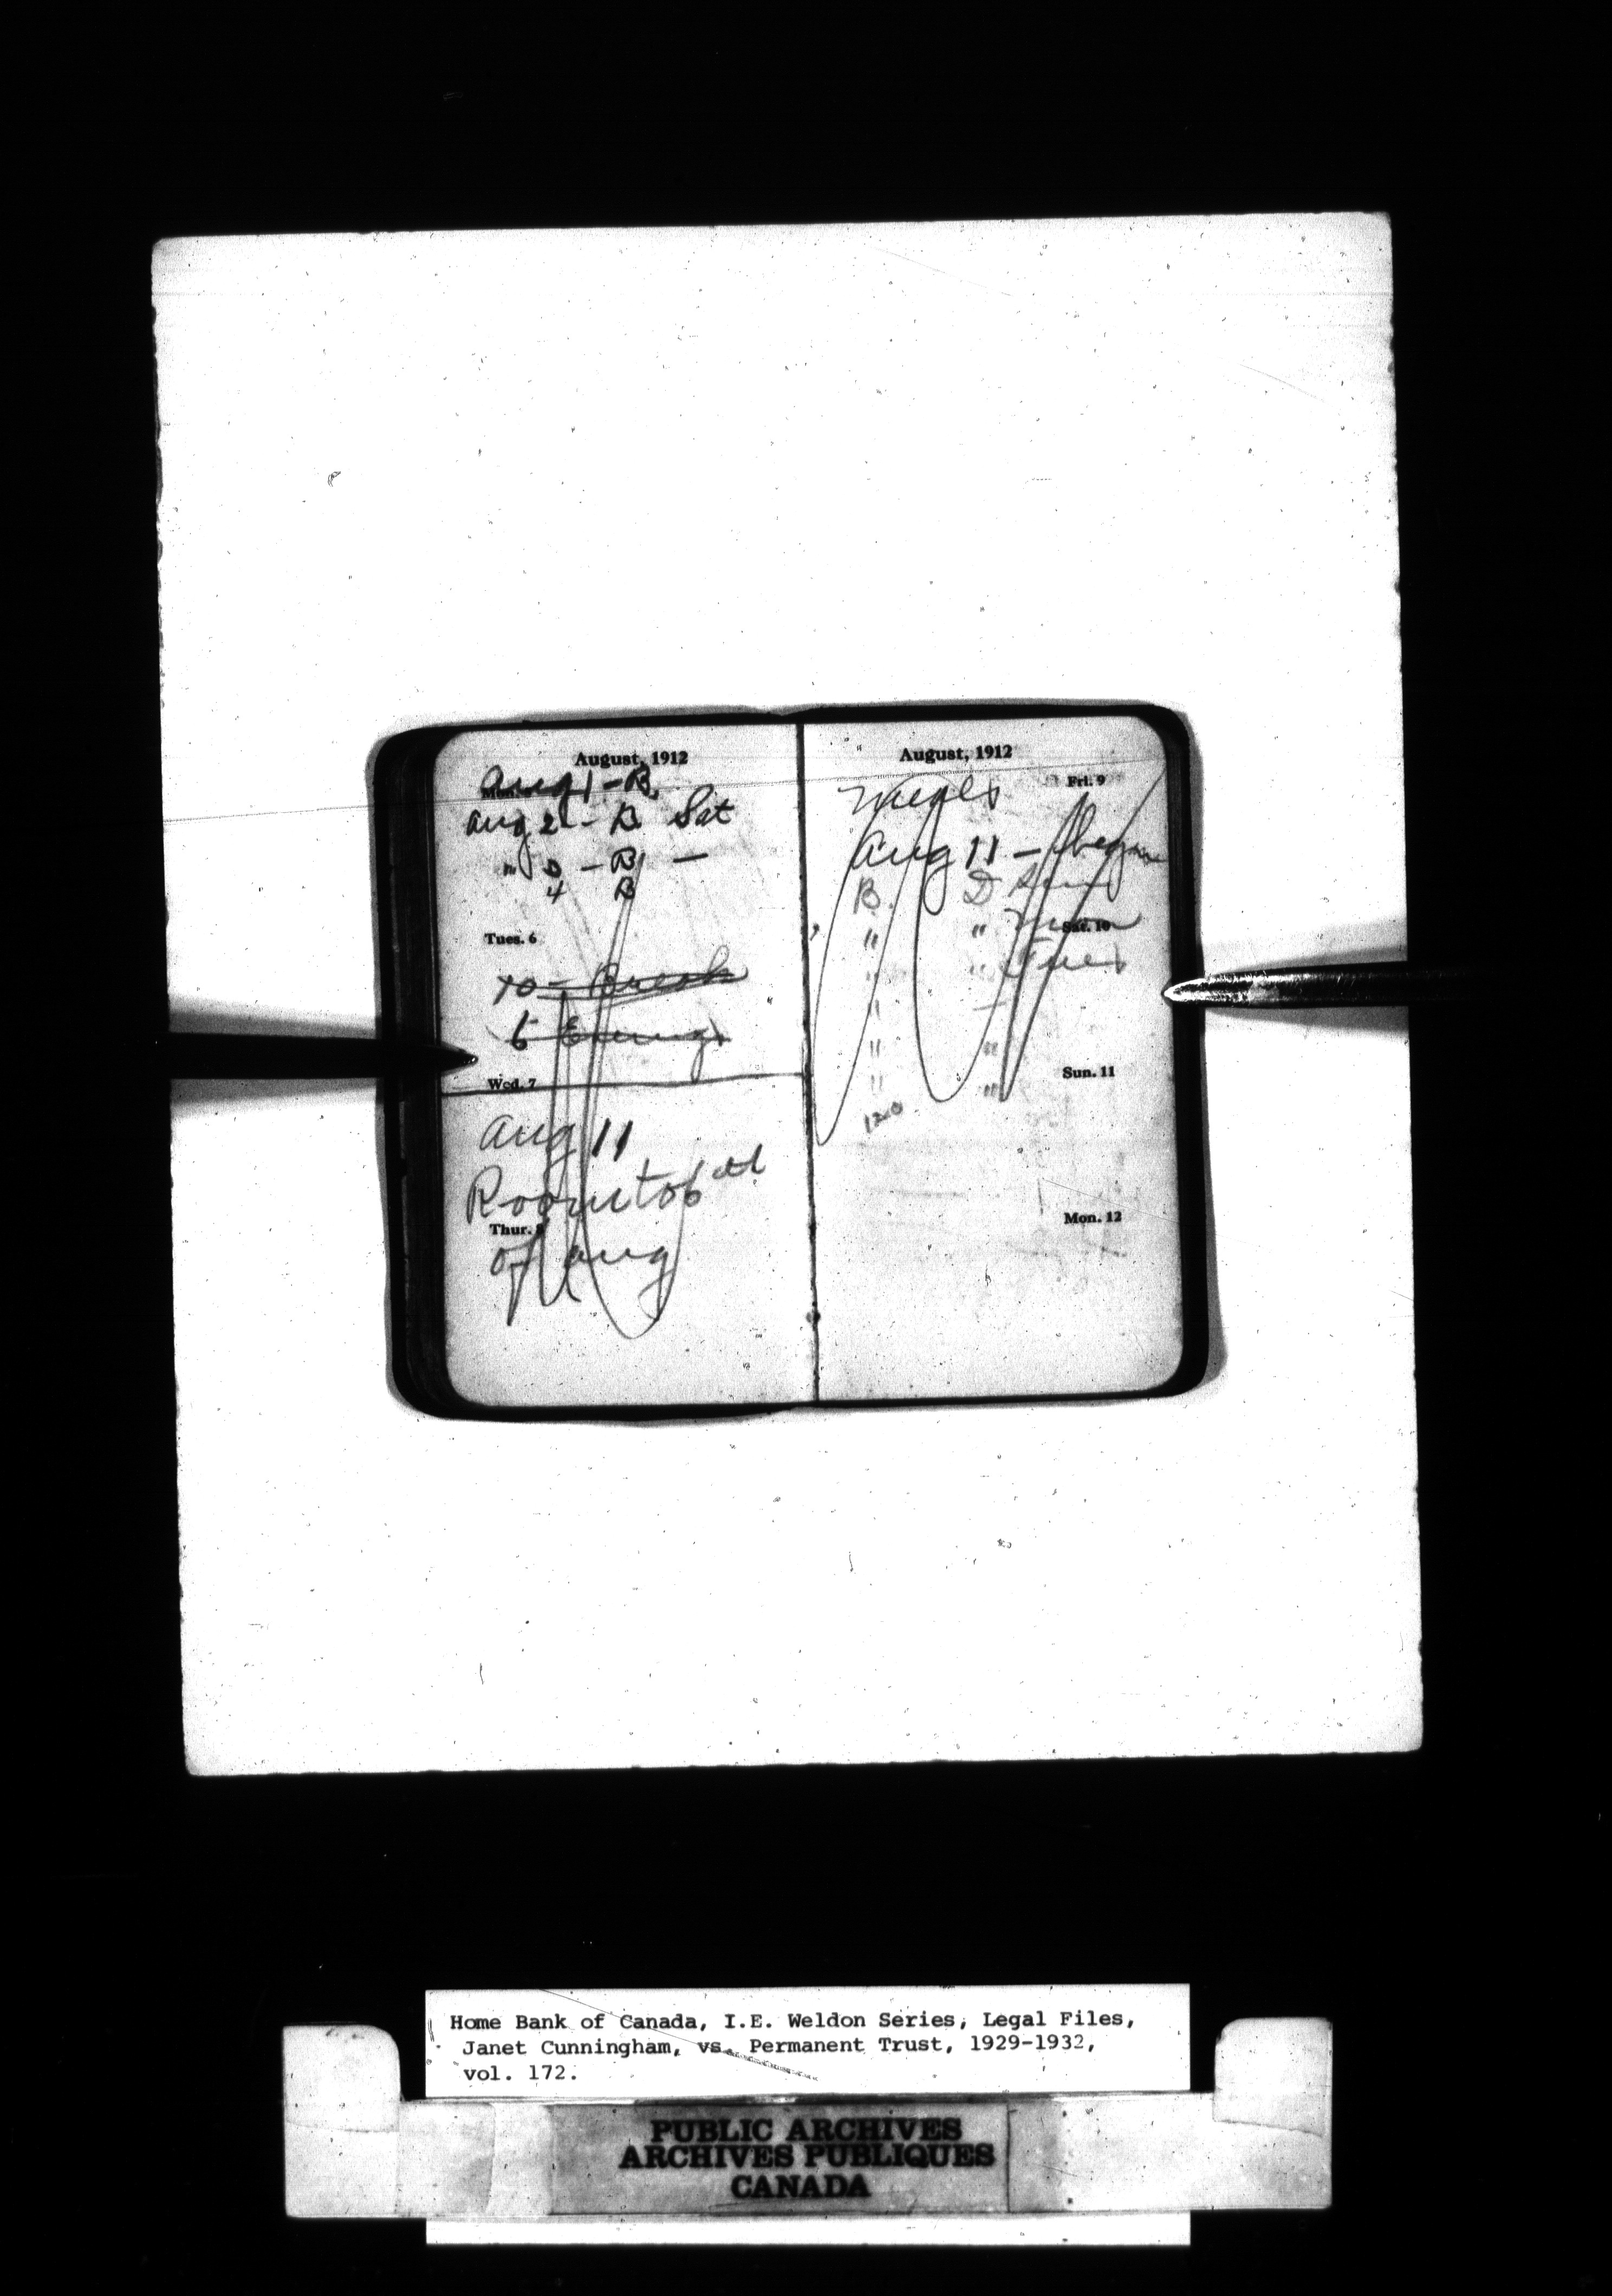 August, 1912
Aug 1 - B.
Mon.
Aug 2 - B Sat
" 3 - B -
4 B
Tues. 6
10 - Break
6
Wed. 7
Aug 11
Room to 6
Thur. 8
of Aug
August, 1912
Meals
Fri. 9
Aug 11 -
B. D Sun
" " Mon
Sat. 10
" " Tues
" -
" "
Sun. 11
" "
Mon. 12
Home Bank of Canada, I.E. Weldon Series, Legal Files,
Janet Cunningham, vs. Permanent Trust, 1929-1932,
vol. 172.
PUBLIC ARCHIVES
ARCHIVES PUBLIQUES
CANADA